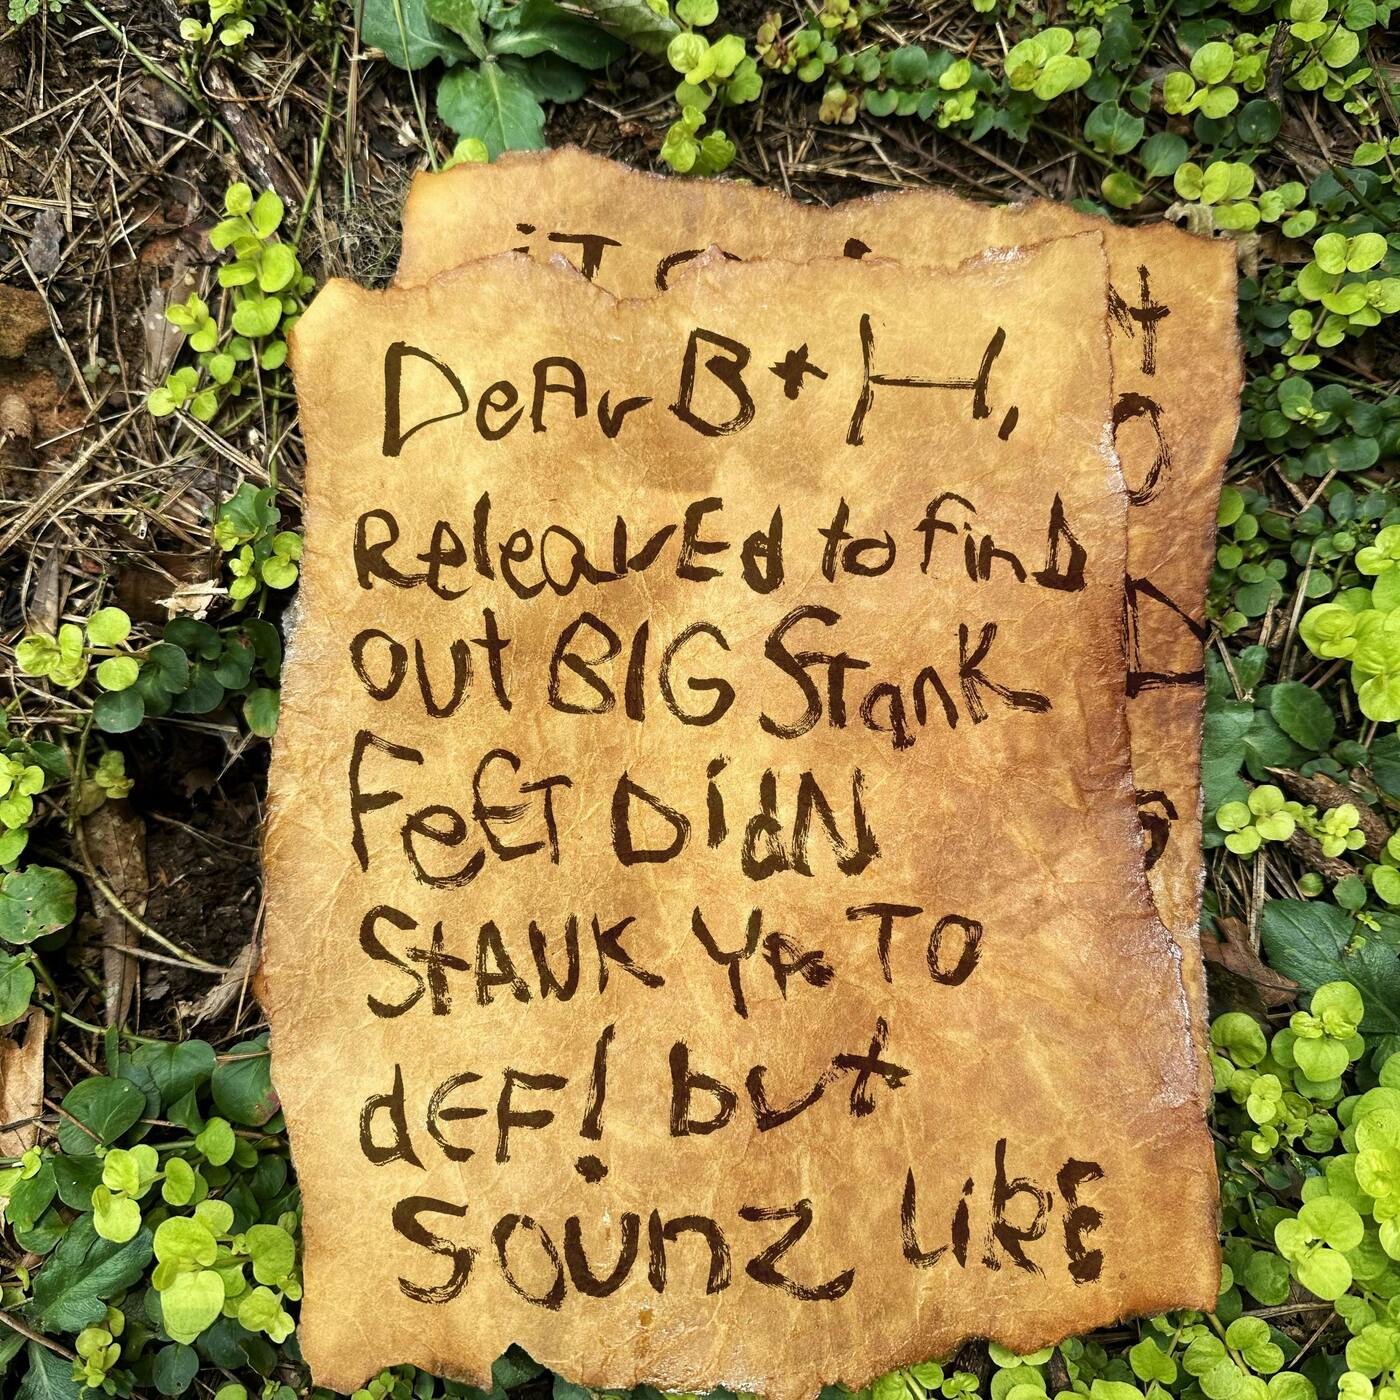 iT
DeAr B + H,
ReleavEd to finD
out BIG STanK
FeET DidN
StANK YA TO
dEF! but
Sounz LikE